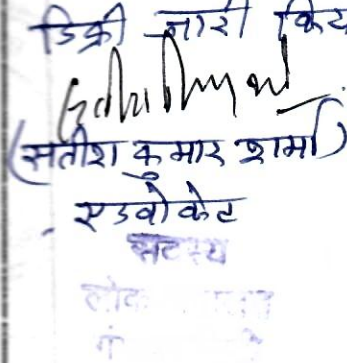 डिक्री जारी किय
(सतीश कुमार शर्मा)
एडवोकेट
सदस्य
लोक